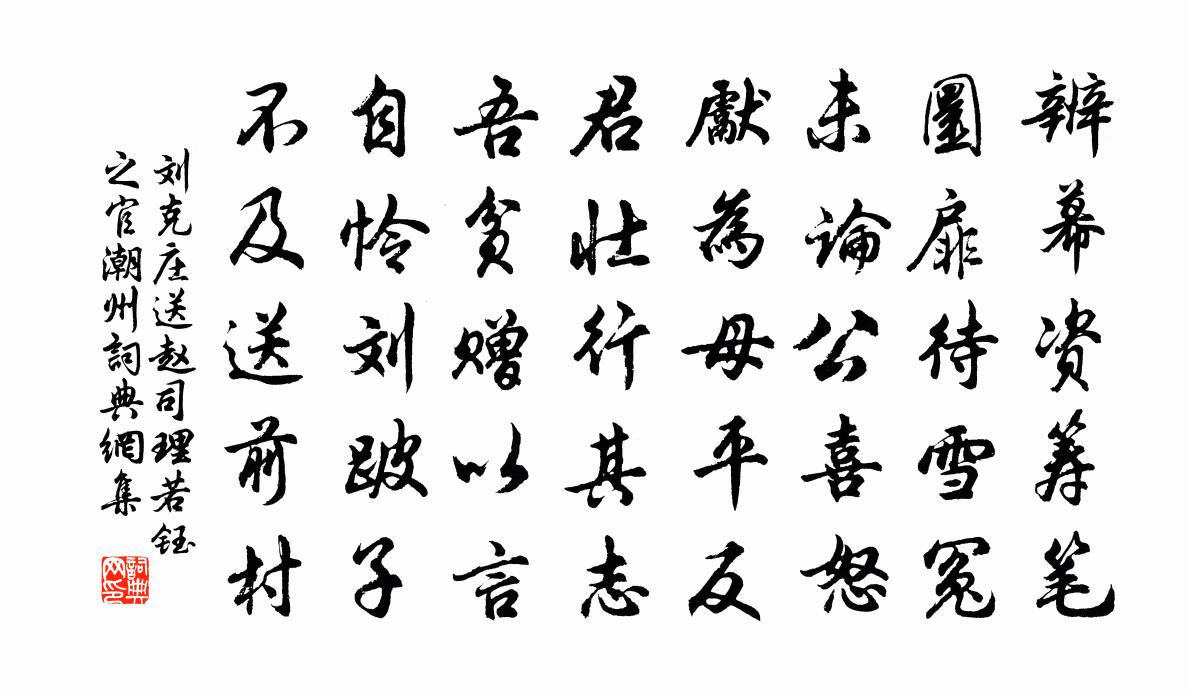 辨幕资筹笔
圜扉待雪冤
未論公喜怒
獻為母平反
君壮行其志
吾贫赠以言
自怜刘跛子
不及送前村
刘克庄送赵司理若鈺
之官潮州詞典網集
詞典网印